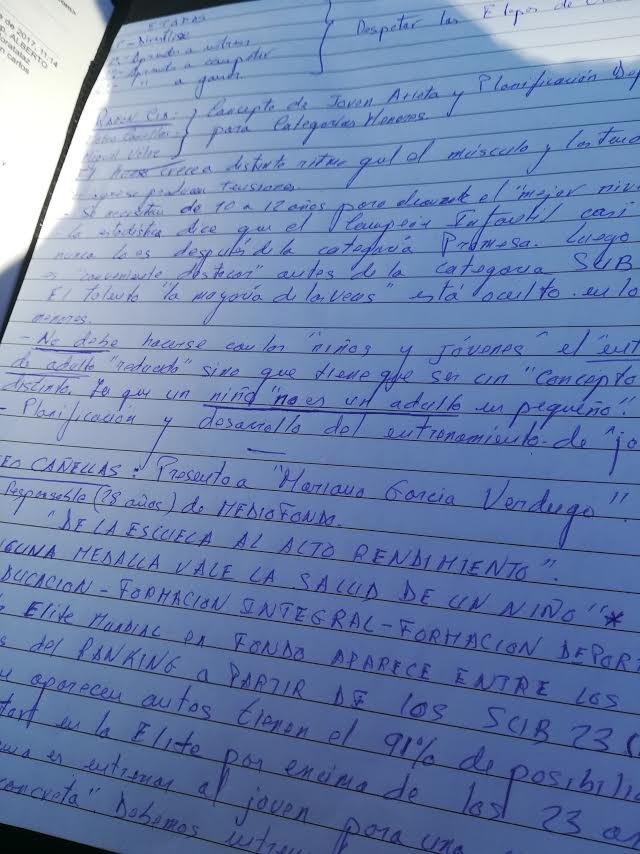 de 2017, 11:14
ALBERTO
carlos
ETAPAS
Respetar las Etapas de
Aprende a entrenar
Aprende a competir
" a ganar
RAMON CID:
Concepto de Joven Atleta y Planificación Dep
para Categorías Menores
Miguel Vélez
El hueso crece a distinto ritmo que el músculo y los ten
tensiones
- Se necesitan de 10 a 12 años para alcanzar el "mejor niv
- la estadística dice que el Campeón Infantil casi
nunca lo es después de la categoría Promesa. Luego
es "conveniente destacar" antes de la categoría SUB
El talento "la mayoría de las veces" está oculto en lo
menores.
- No debe hacerse con los "niños y jóvenes" el "ent
de adulto "reducido" sino que tiene que ser un "concepto
distinto. Ya que un niño "no es un adulto en pequeño".
- Planificación y desarrollo del entrenamiento de "jo
CAÑELLAS: Presento a "Mariano García Verdugo"
Responsable (28 años) de MEDIOFONDO.
"DE LA ESCUELA AL ALTO RENDIMIENTO".
GUNA MEDALLA VALE LA SALUD DE UN NIÑO" *
DUCACION - FORMACION INTEGRAL - FORMACION DEPORT
Elite Mundial en FONDO APARECE ENTRE LOS
DEL RANKING a PARTIR DE LOS SUB 23 (
aparecen antes tienen el 91% de posibilid
en la Elite por encima de los 23 a
es entrenar al joven para una
concreta" Debemos